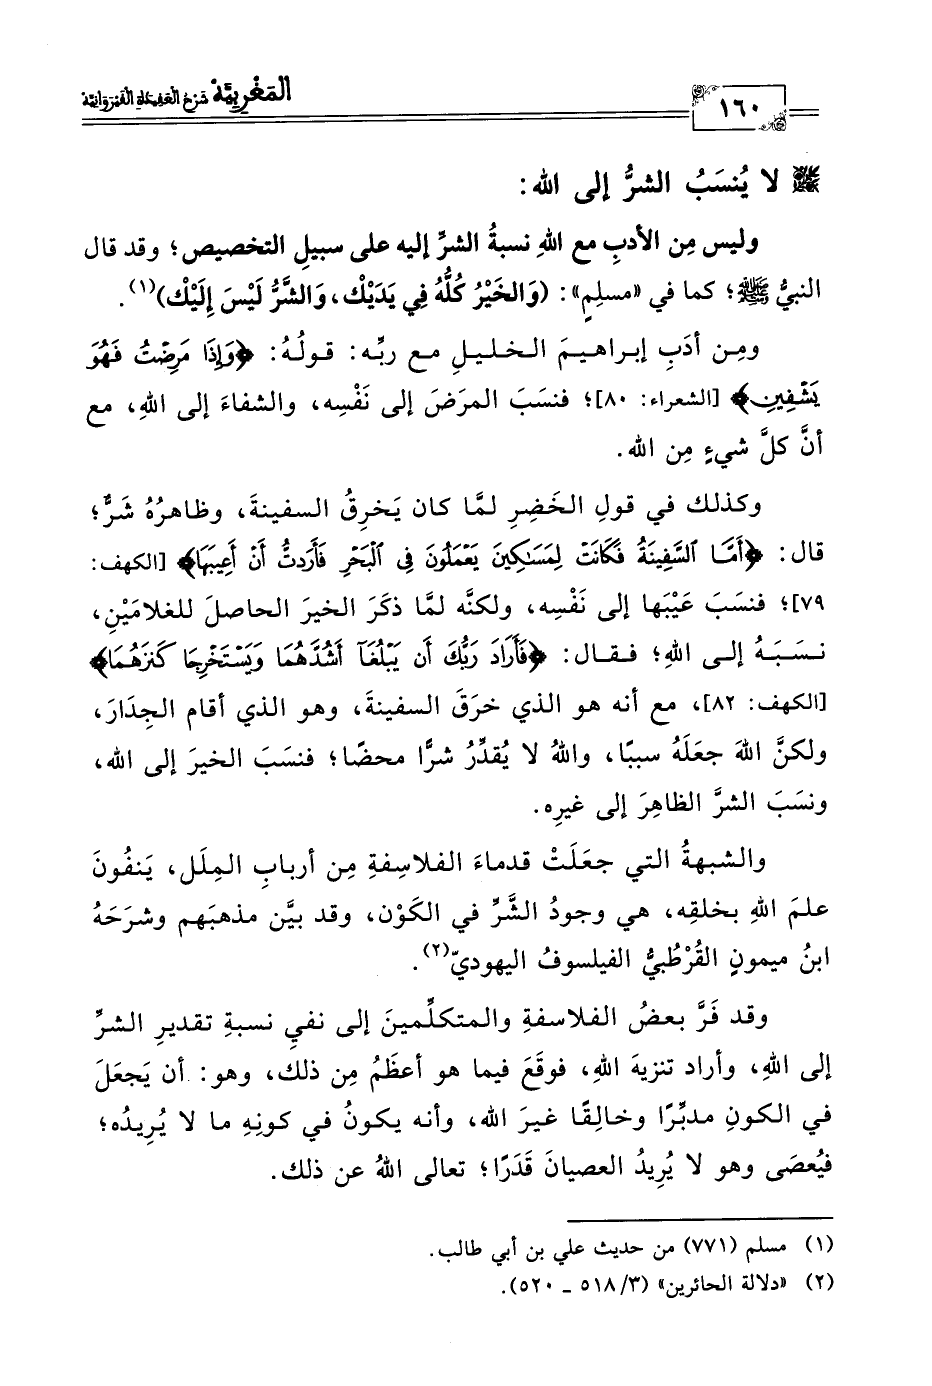 المغربية شرح العقيدة القيروانية
١٦٠
لا يُنسَبُ الشرُّ إلى الله:
وليس مِن الأدبِ مع اللهِ نسبةُ الشرِّ إليه على سبيلِ التخصيص؛ وقد قال
النبيُّ ﷺ؛ كما في «مسلِمٍ»: (وَالخَيْرُ كُلُّهُ فِي يَدَيْكَ، وَالشَّرُّ لَيْسَ إِلَيْكَ)(١).
ومِن أدَبِ إبراهيمَ الخليلِ مع ربِّه: قولُهُ: ﴿وَإِذَا مَرِضْتُ فَهُوَ
يَشْفِينِ﴾ [الشعراء: ٨٠]؛ فنسَبَ المرَضَ إلى نَفْسِه، والشفاءَ إلى اللهِ، مع
أنَّ كلَّ شيءٍ مِن الله.
وكذلك في قولِ الخَضِرِ لمَّا كان يَخرِقُ السفينةَ، وظاهرُهُ شَرٌّ؛
قال: ﴿أَمَّا ٱلسَّفِينَةُ فَكَانَتْ لِمَسَٰكِينَ يَعْمَلُونَ فِى ٱلْبَحْرِ فَأَرَدتُّ أَنْ أَعِيبَهَا﴾ [الكهف:
٧٩]؛ فنسَبَ عَيْبَها إلى نَفْسِه، ولكنَّه لمَّا ذكَرَ الخيرَ الحاصلَ للغلامَيْنِ،
نسَبَهُ إلى اللهِ؛ فقال: ﴿فَأَرَادَ رَبُّكَ أَن يَبْلُغَآ أَشُدَّهُمَا وَيَسْتَخْرِجَا كَنزَهُمَا﴾
[الكهف: ٨٢]، مع أنه هو الذي خرَقَ السفينةَ، وهو الذي أقام الجِدَارَ،
ولكنَّ اللهَ جعَلَهُ سببًا، واللهُ لا يُقدِّرُ شرًّا محضًا؛ فنسَبَ الخيرَ إلى الله،
ونسَبَ الشرَّ الظاهِرَ إلى غيرِه.
والشبهةُ التي جعَلَتْ قدماءَ الفلاسِفةِ مِن أربابِ المِلَل، يَنفُونَ
علمَ اللهِ بخلقِه، هي وجودُ الشَّرِّ في الكَوْن، وقد بيَّن مذهبَهم وشرَحَهُ
ابنُ ميمونٍ القُرْطُبيُّ الفيلسوفُ اليهوديّ(٢).
وقد فَرَّ بعضُ الفلاسفةِ والمتكلِّمينَ إلى نفيِ نسبةِ تقديرِ الشرِّ
إلى اللهِ، وأراد تنزيهَ اللهِ، فوقَعَ فيما هو أعظَمُ مِن ذلك، وهو: أن يَجعَلَ
في الكونِ مدبِّرًا وخالِقًا غيرَ الله، وأنه يكونُ في كونِهِ ما لا يُرِيدُه؛
فيُعصَى وهو لا يُرِيدُ العصيانَ قَدَرًا؛ تعالى اللهُ عن ذلك.
(١) مسلم (٧٧١) من حديث علي بن أبي طالب.
(٢) «دلالة الحائرين» (٣/ ٥١٨ ـ ٥٢٠).